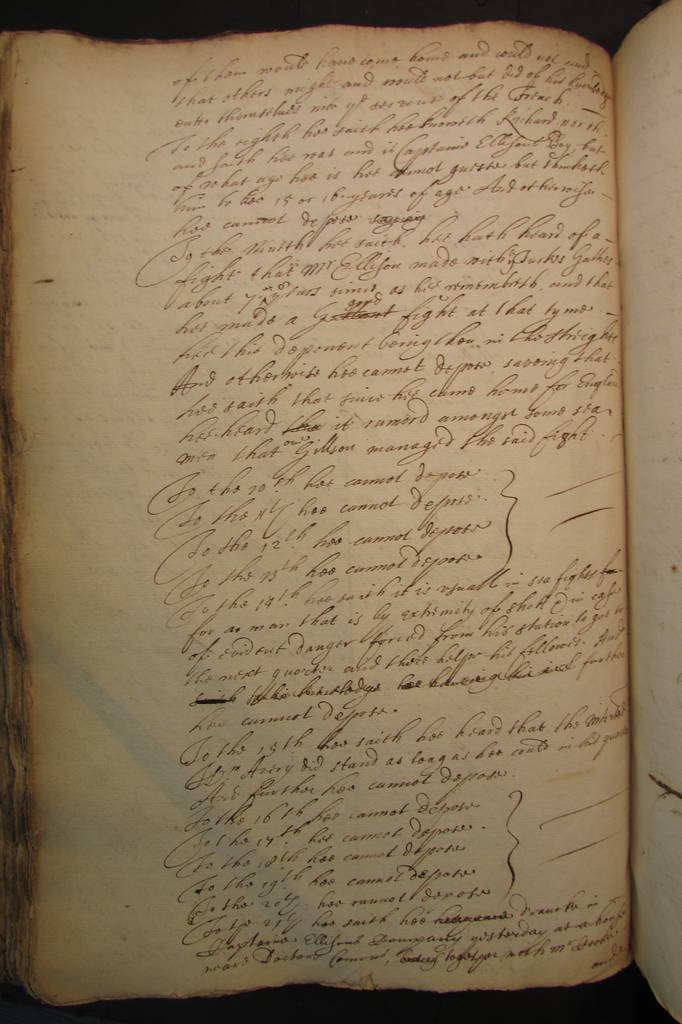 of them would have come home and could not and
that others might and would not but did of his
enter themselves into ye service of the French
To the eighth hee saith hee knoweth Richard North
and saith hee was and is Captaine Ellisons Boy, but
of what age hee is hee cannot guesse but thinketh
him to bee 15 or 16 yeares of age And otherwise
hee cannot depose saveing
To the Nineth hee saith hee hath heard of a
fight that Mr Ellison made with ye Turkes
about 7 or 8 yeares since as hee remembreth, and that
hee made a Gallant good fight at that tyme
hee this deponent being then in the Streights
And otherwise hee cannot depose saveing that
hee saith that since hee came home for England
hee heard it rumord amongst some sea
men that one Gillson managed the said fight
To the 10th hee cannot depose
To the 11th hee cannot depose
To the 12th hee cannot depose
To the 13th hee cannot depose
To the 14th hee saith it is usuall in sea fights
for a man that is by extremity of shott & in case
of evident danger forced from his station to goe to
the next quarter and there helpe his fellowes. And
further
hee cannot depose.
To the 15th hee saith hee heard that the
Wm Avery did stand as long as hee could in his quarter
And further hee cannot depose.
To the 16th hee cannot depose
To the 17th hee cannot depose
To the 18th hee cannot depose
To the 19th hee cannot depose
To the 20th hee cannot depose
To the 21th hee saith hee dranke in
Captaine Ellisons Company yesterday at a house
neare Doctors Comons, together with Mr
and